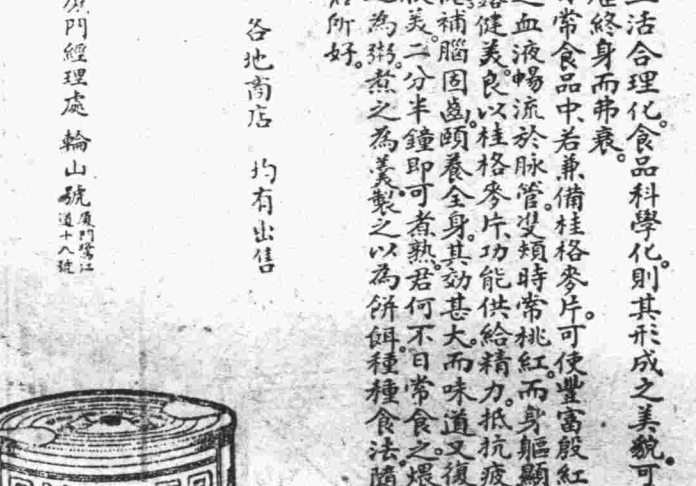 生活合理化。食品科學化。則其形成之美貌可
終身而弗衰。
常食品中。若兼備桂格麥片。可使豐富殷紅
之血液暢流於脉管。雙頰時常桃紅。而身軀顯
健美良。以桂格麥片功能供給精力。抵抗疲
補腦固齒。頤養全身。其効甚大。而味道又復
美。二分半鐘即可煮熟。君何不日常食之。煨
之為粥。煮之為羹。製之以為餅餌。種種食法。隨
所好。
各地商店 均有出售
廈門經理處 輪山號 廈門鷺江道十八號